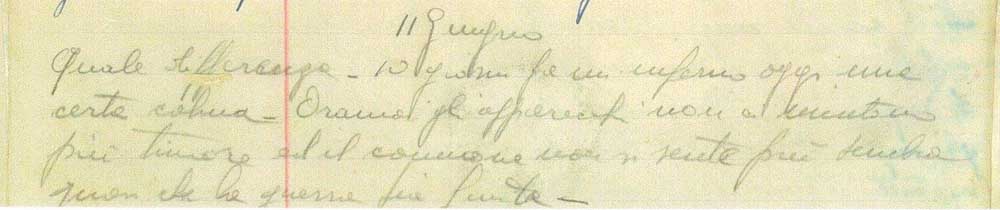 11 Giugno
Quale differenza - 10 giorni fa un inferno oggi una
certa calma - Oramai gli apparecchi non ci
più timore ed il cannone non si sente più sembra
quasi che la guerra sia finita -